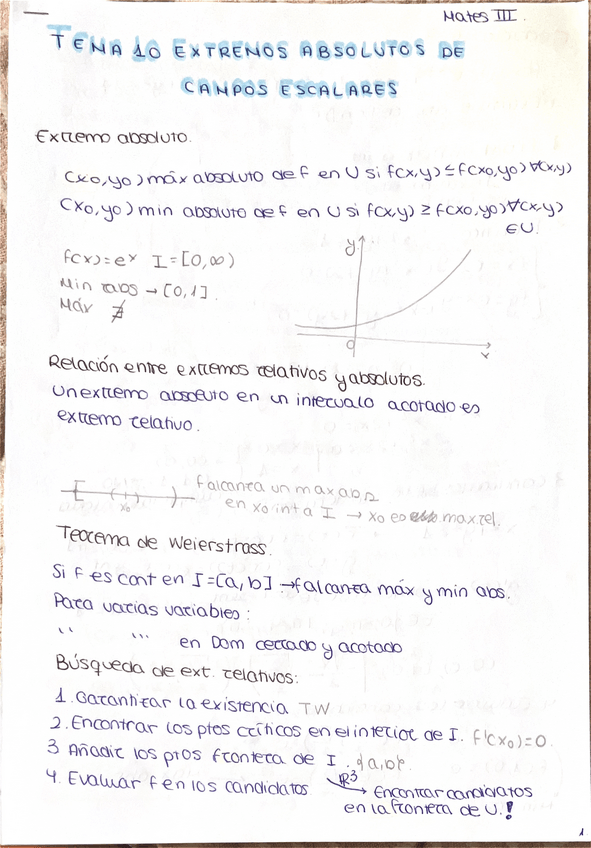 Mates III
TEMA 10 EXTREMOS ABSOLUTOS DE
CAMPOS ESCALARES
Extremo absoluto.
(x0,y0) máx absoluto de f en U si f(x,y) ≤ f(x0,y0) ∀(x,y)
(x0,y0) min absoluto de f en U si f(x,y) ≥ f(x0,y0) ∀(x,y)
∈ U.
f(x)=e^x I=[0,∞)
Min abs → [0,1].
Máx ∄
y
0
x
Relación entre extremos relativos y absolutos.
Un extremo absoluto en un intervalo acotado es
extremo relativo.
f alcanza un max abs
en x0 int a I → x0 es max rel.
x0
Teorema de Weierstrass.
Si f es cont en I=[a,b] → f alcanza máx y min abs.
Para varias variables:
'' ''' en Dom cerrado y acotado
Búsqueda de ext. relativos:
1. Garantizar la existencia TW
2. Encontrar los ptos críticos en el interior de I. f'(x0)=0.
3 Añadir los ptos frontera de I. {a,b}.
4. Evaluar f en los candidatos
R³
→ Encontrar candidatos
en la frontera de U.!
1